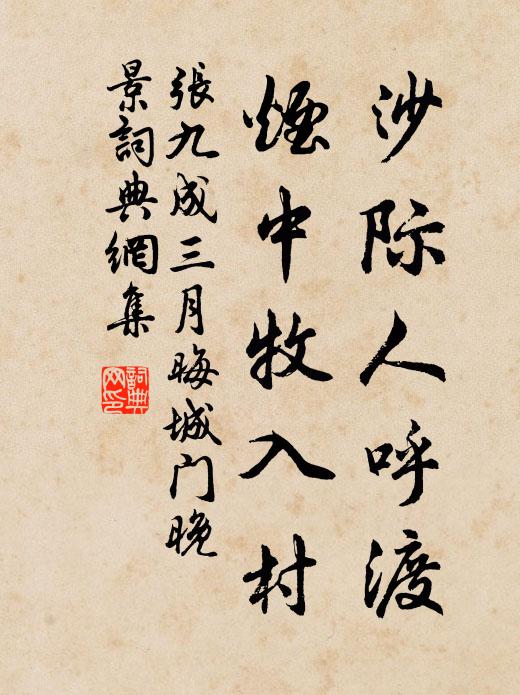 沙际人呼渡
煙中牧入村
張九成三月晦城门晚
景詞典網集
詞典
网印